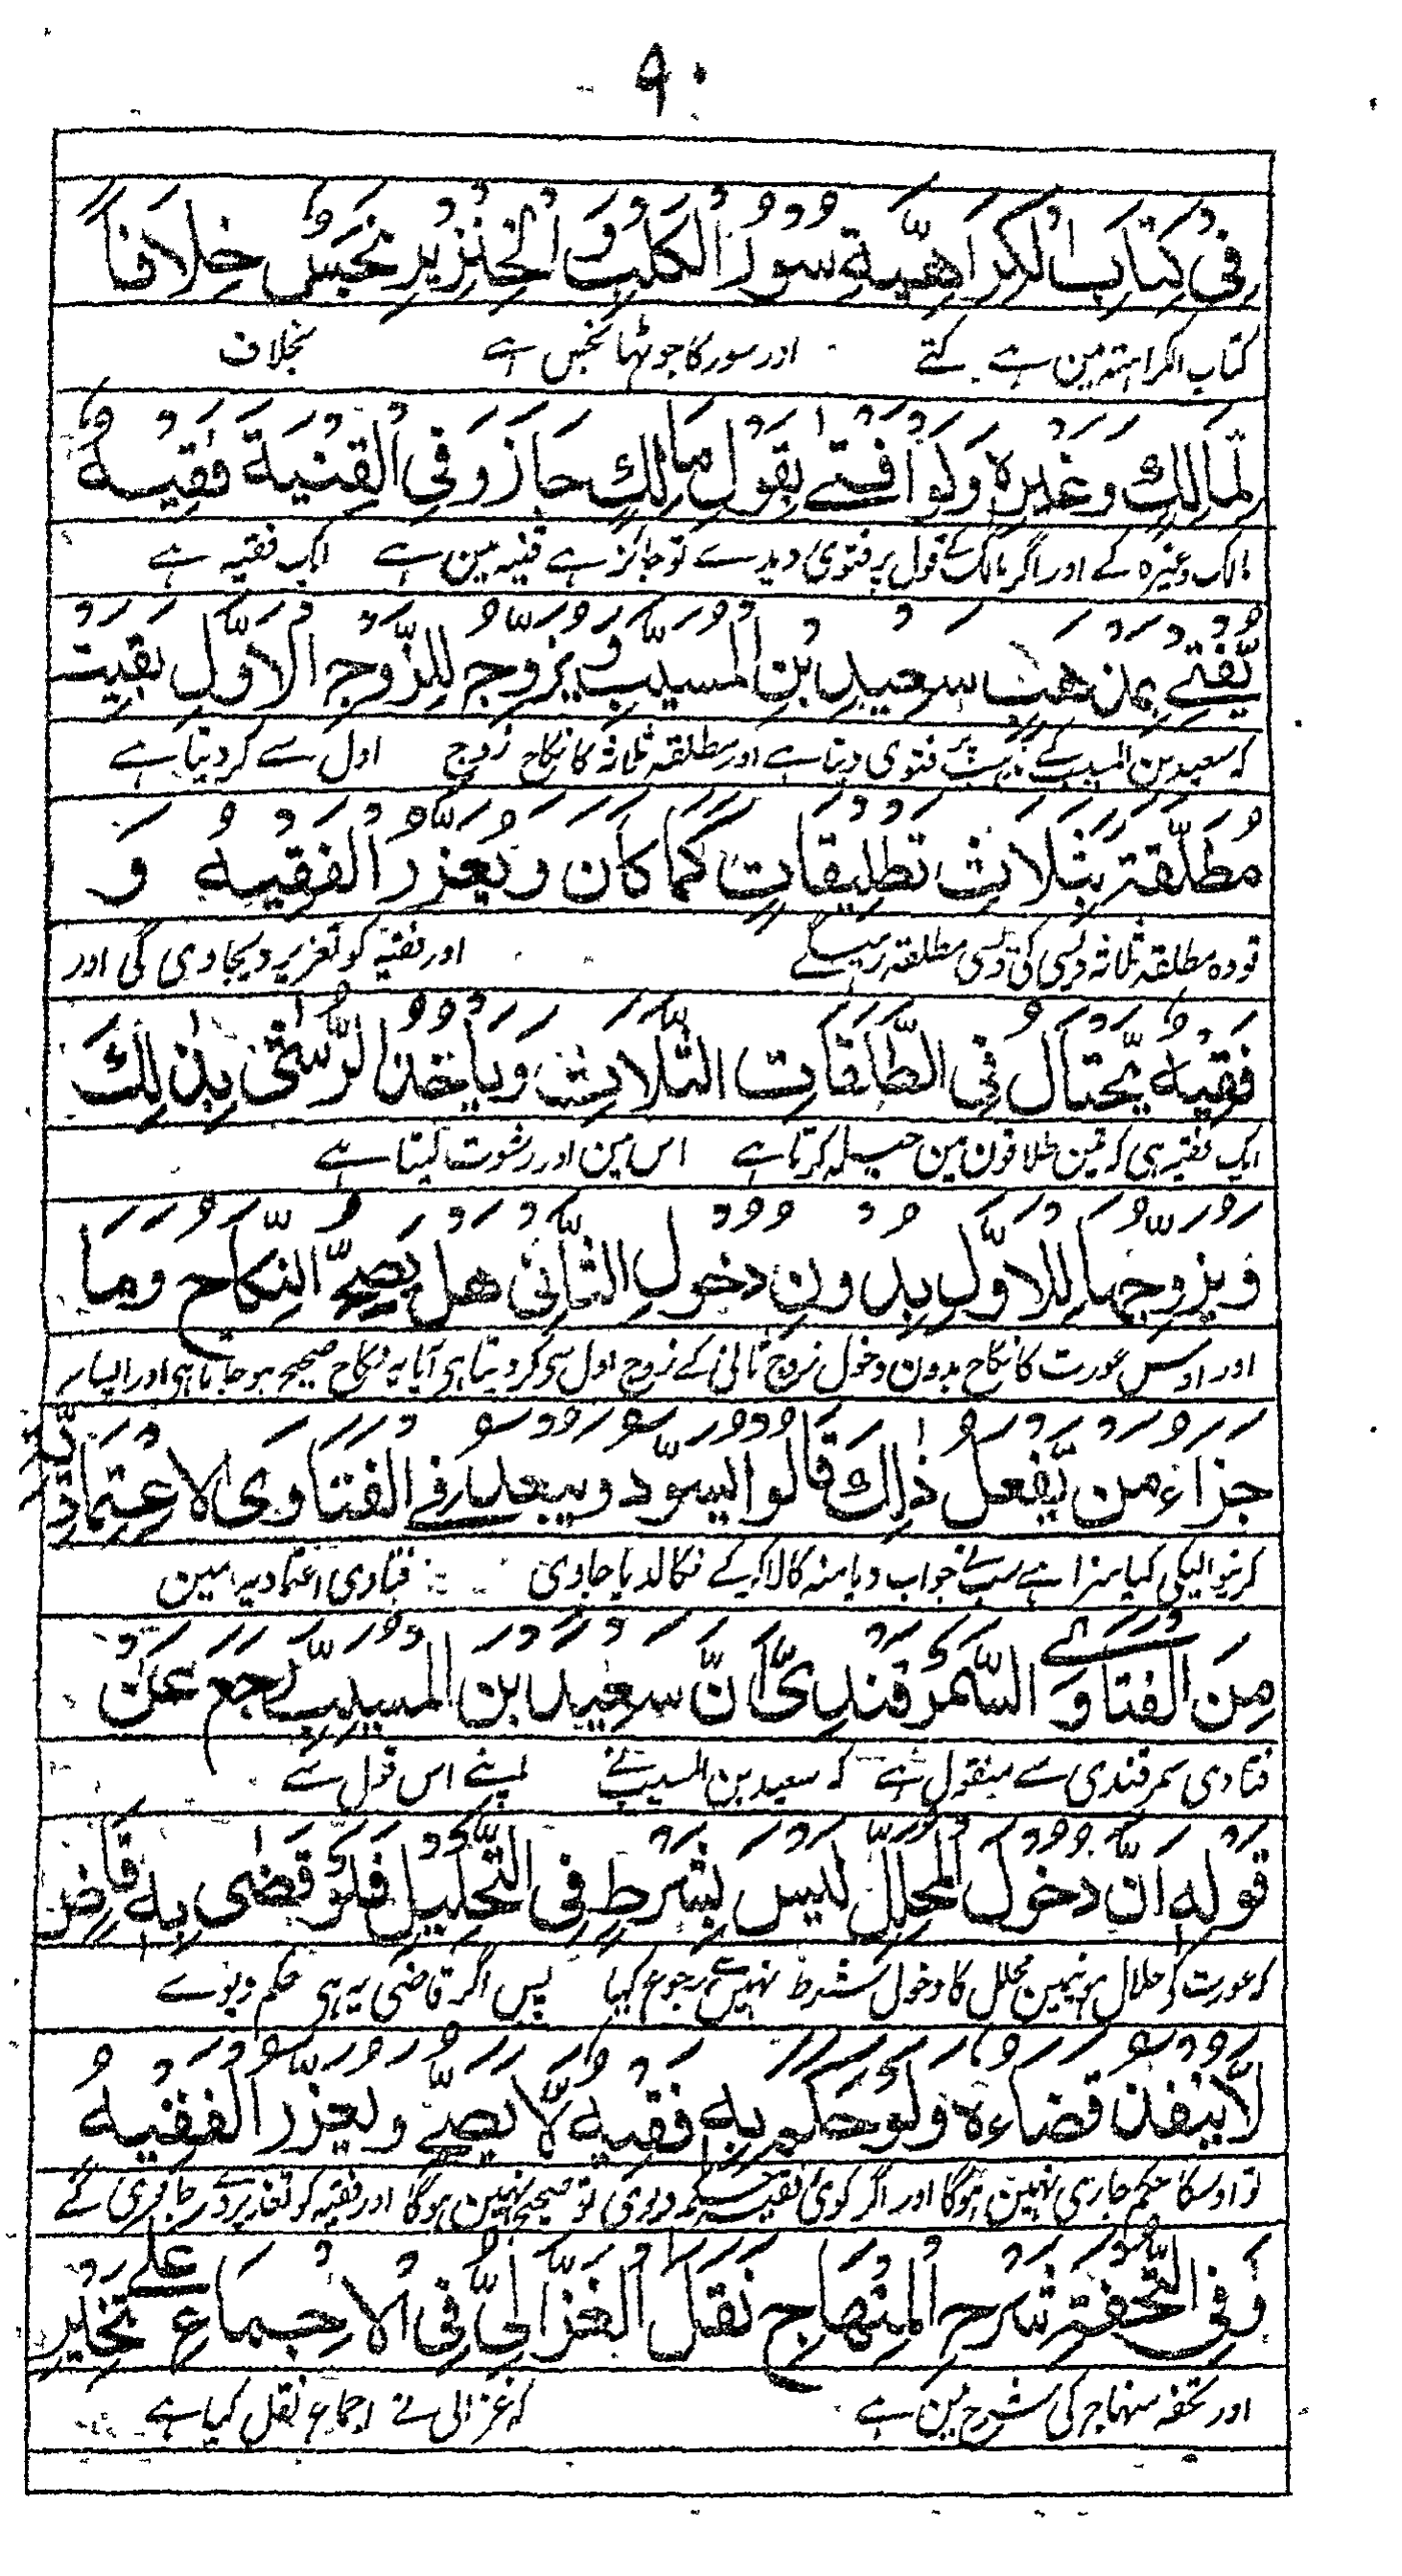 ۹۰
فِى كِتَابِ الْكِرَاهِيَّةِ سُوْرُ الْكَلْبِ وَ الْخِنْزِيْرِ نَجَسٌ خِلَافًا
كتاب الكراهته مين ہے كتے اور سور كا جوٹھا نجس ہے بخلاف
لِّمَالِكٍ وَغَيْرِهٖ وَلَوْ اَفْتٰے بِقَوْلِ مَالِكٍ جَازَ وَفِى الْقِنْيَةِ فَقِيْهٌ
مالک وغیرہ کے اور اگر مالک کے قول پر فتوی دیدے تو جائز ہے قنیہ مین ہے ایک فقیہ ہے
يُّفْتِىْ بِمَذْهَبِ سَعِيْدِ بْنِ الْمُسَيَّبِ وَ يُزَوِّجُ لِلزَّوْجِ الْاَوَّلِ بَقِيَتْ
کہ سعید بن المسیب کے مذہب پر فتوی دیتا ہے اور مطلقہ ثلاثہ کا نکاح زوج اول سے کر دیتا ہے
مُطَلَّقَةً بِثَلَاثِ تَطْلِيْقَاتٍ كَمَا كَانَ وَيُعَزَّرُ الْفَقِيْهُ وَ
تو وہ مطلقہ ثلاثہ ویسی کی ویسی مطلقہ رہیگے اور فقیہ کو تعزیر دیجاوی گی اور
فَقِيْهٌ يَّحْتَالُ فِى الطَّلَقَاتِ الثَّلَاثِ وَيَاْخُذُ الرُّشٰى بِذٰلِكَ
ایک فقیہ ہی کہ تین طلاقون مین حیلہ کرتا ہے اس مین اور رشوت لیتا ہے
وَيُزَوِّجُهَا لِلْاَوَّلِ بِدُوْنِ دُخُوْلِ الثَّانِىْ هَلْ يَصِحُّ النِّكَاحُ وَمَا
اور اوس عورت کا نکاح بدون دخول زوج ثانی کے زوج اول سی کر دیتا ہی آیا یہ نکاح صحیح ہو جاتا ہی اور ایسا
جَزَاءُ مَنْ يَّفْعَلُ ذٰلِكَ قَالُوْا يُسَوَّدُ وَيُبْعَدُ فِى الْفَتَاوَى الْاِعْتِمَادِيَّةِ
کرنیوالیکی کیا سزا ہے سبنے جواب دیا منہ کالا کر کے نکالدیا جاوی فتاوی اعتمادیہ مین
مِنَ الْفَتَاوٰے السَّمَرْقَنْدِىِّ اَنَّ سَعِيْدَ بْنَ الْمُسَيَّبِ رَجَعَ عَنْ
فتاوی سمرقندی سے منقول ہے کہ سعید بن المسیب نے اپنے اس قول سے
قَوْلِهٖ اَنَّ دُخُوْلَ الْمُحَلِّلِ لَيْسَ بِشَرْطٍ فِى التَّحْلِيْلِ فَلَوْ قَضٰى بِهٖ قَاضٍ
کہ عورت کے حلال ہونیمین محلل کا دخول شرط نہین ہے رجوع کیا پس اگر قاضی یہ ہی حکم دیوے
لَّا يَنْفُذُ قَضَاءُهٗ وَلَوْ حَكَمَ بِهٖ فَقِيْهٌ لَّا يَصِحُّ وَيُعَزَّرُ الْفَقِيْهُ
تو اوسکا حکم جاری نہین ہوگا اور اگر کوئی فقیہ حکم دیوی تو صحیح نہین ہوگا اور فقیہ کو تعزیر
وَفِى التُّحْفَةِ شَرْحِ الْمِنْهَاجِ نَقَلَ الْغَزَالِىُّ فِى الْاِجْمَاعِ عَلٰے تَخْيِيْرِ
اور تحفہ منہاج کی شرح مین ہے کہ غزالی نے اجماع نقل کیا ہے